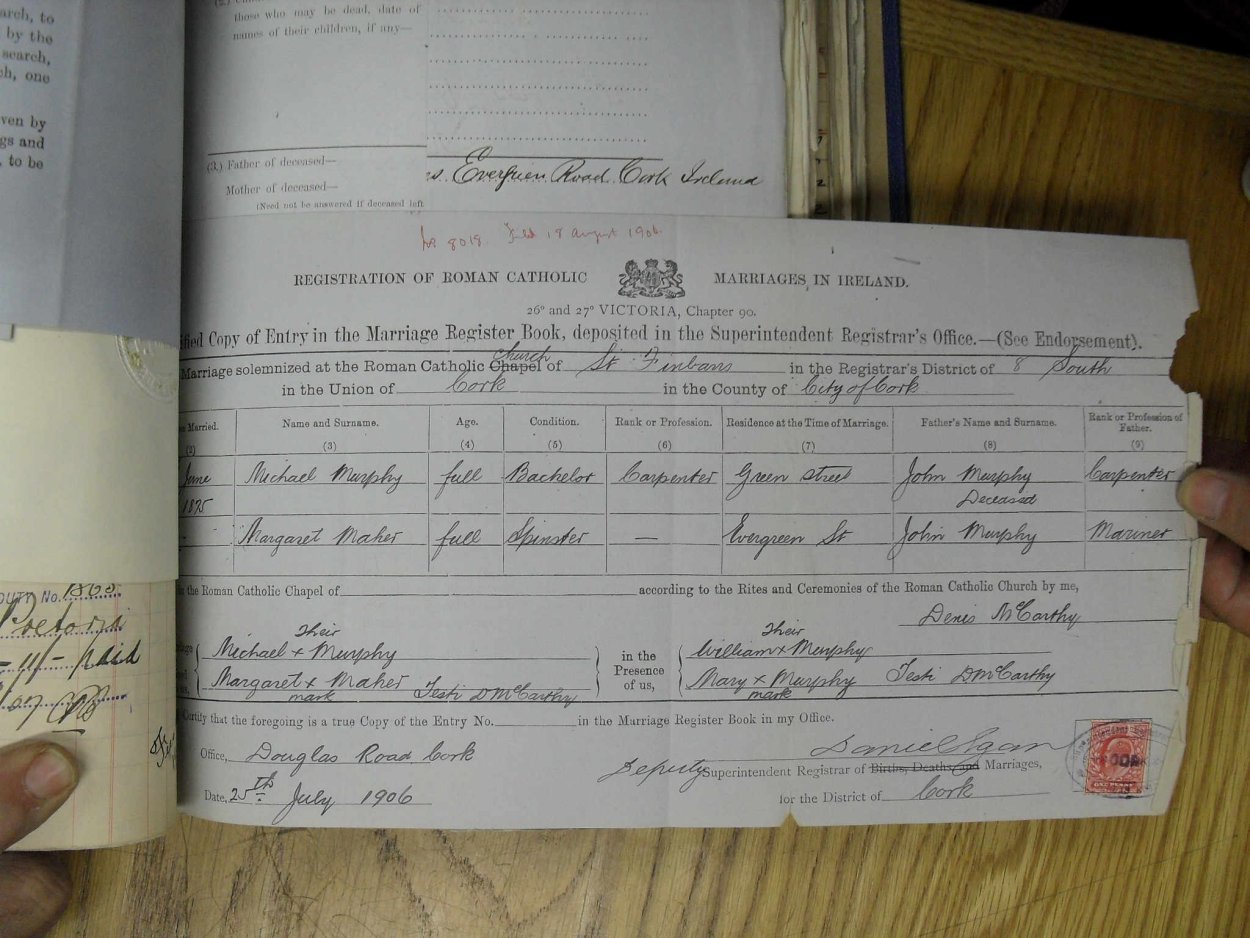 arch, to
by the
search,
ch, one
ven by
gs and
, to be
those who may be dead, date of
names of their children, if any—
(3.) Father of deceased—
s. Evergreen Road Cork Ireland
Mother of deceased—
(Need not be answered if deceased left
No 8018 Filed 18 August 1906
REGISTRATION OF ROMAN CATHOLIC MARRIAGES IN IRELAND.
26° and 27° VICTORIA, Chapter 90.
ified Copy of Entry in the Marriage Register Book, deposited in the Superintendent Registrar's Office.—(See Endorsement).
Church
Marriage solemnized at the Roman Catholic Chapel of St Finbars in the Registrar's District of 8 South
in the Union of Cork in the County of City of Cork
Married. Name and Surname. Age. Condition. Rank or Profession. Residence at the Time of Marriage. Father's Name and Surname. Rank or Profession of Father.
(2) (3) (4) (5) (6) (7) (8) (9)
June Michael Murphy full Bachelor Carpenter Green street John Murphy Carpenter
1875 Deceased
Margaret Maher full Spinster — Evergreen St John Murphy Mariner
the Roman Catholic Chapel of according to the Rites and Ceremonies of the Roman Catholic Church by me,
Denis McCarthy
Their Their
Michael x Murphy in the William x Murphy
Margaret x Maher Testi DMcCarthy Presence Mary x Murphy Testi DMcCarthy
mark of us, mark
Certify that the foregoing is a true Copy of the Entry No. in the Marriage Register Book in my Office.
Office, Douglas Road Cork Daniel Egan
Deputy Superintendent Registrar of Births, Deaths, and Marriages,
Date, 25th July 1906 for the District of Cork
ONE PENNY
DUTY No.
-11/- paid